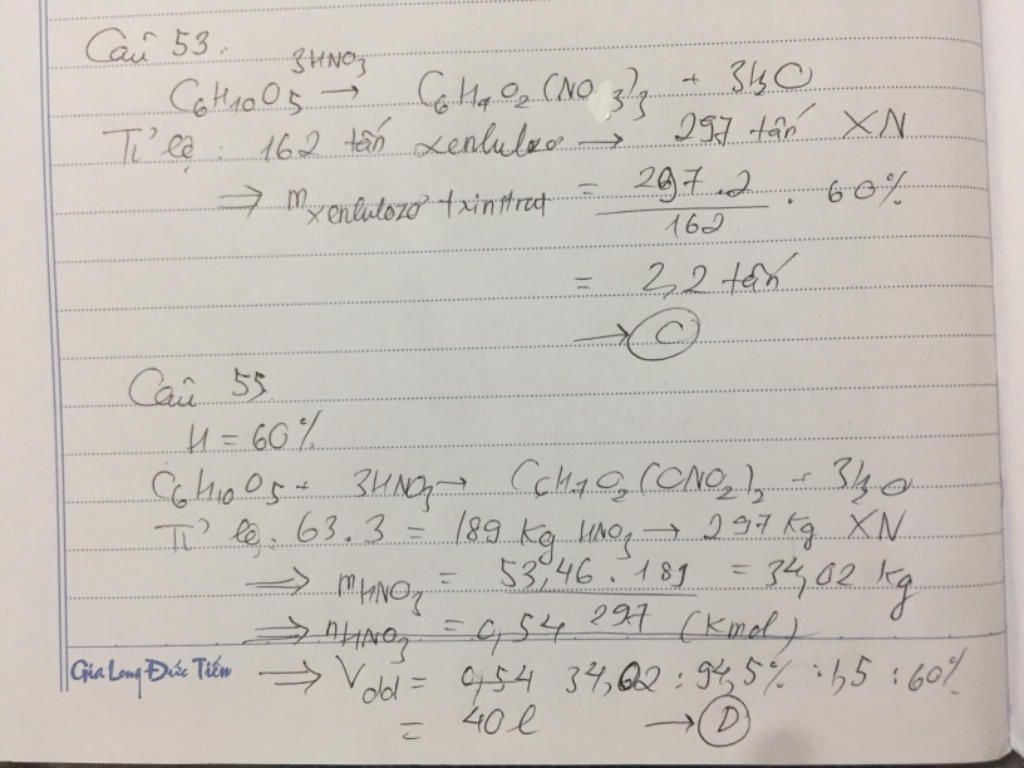 Câu 53.
3HNO3
C6H10O5 → C6H7O2(NO3)3 + 3H2O
Tỉ lệ : 162 tấn xenlulozo → 297 tấn XN
⇒ m xenlulozo trinitrat = 297.2 / 162 . 60%
= 2,2 tấn
→ C
Câu 55
H = 60%
C6H10O5 + 3HNO3 → C6H7O2(ONO2)3 + 3H2O
Tỉ lệ. 63.3 = 189 kg HNO3 → 297 kg XN
⇒ mHNO3 = 53,46.189 / 297 = 34,02 kg
⇒ nHNO3 = 0,54 (Kmol)
Gia Long Đức Tiến
⇒ Vdd = 0,54 34,02 : 94,5% : 1,5 : 60%
= 40l → D